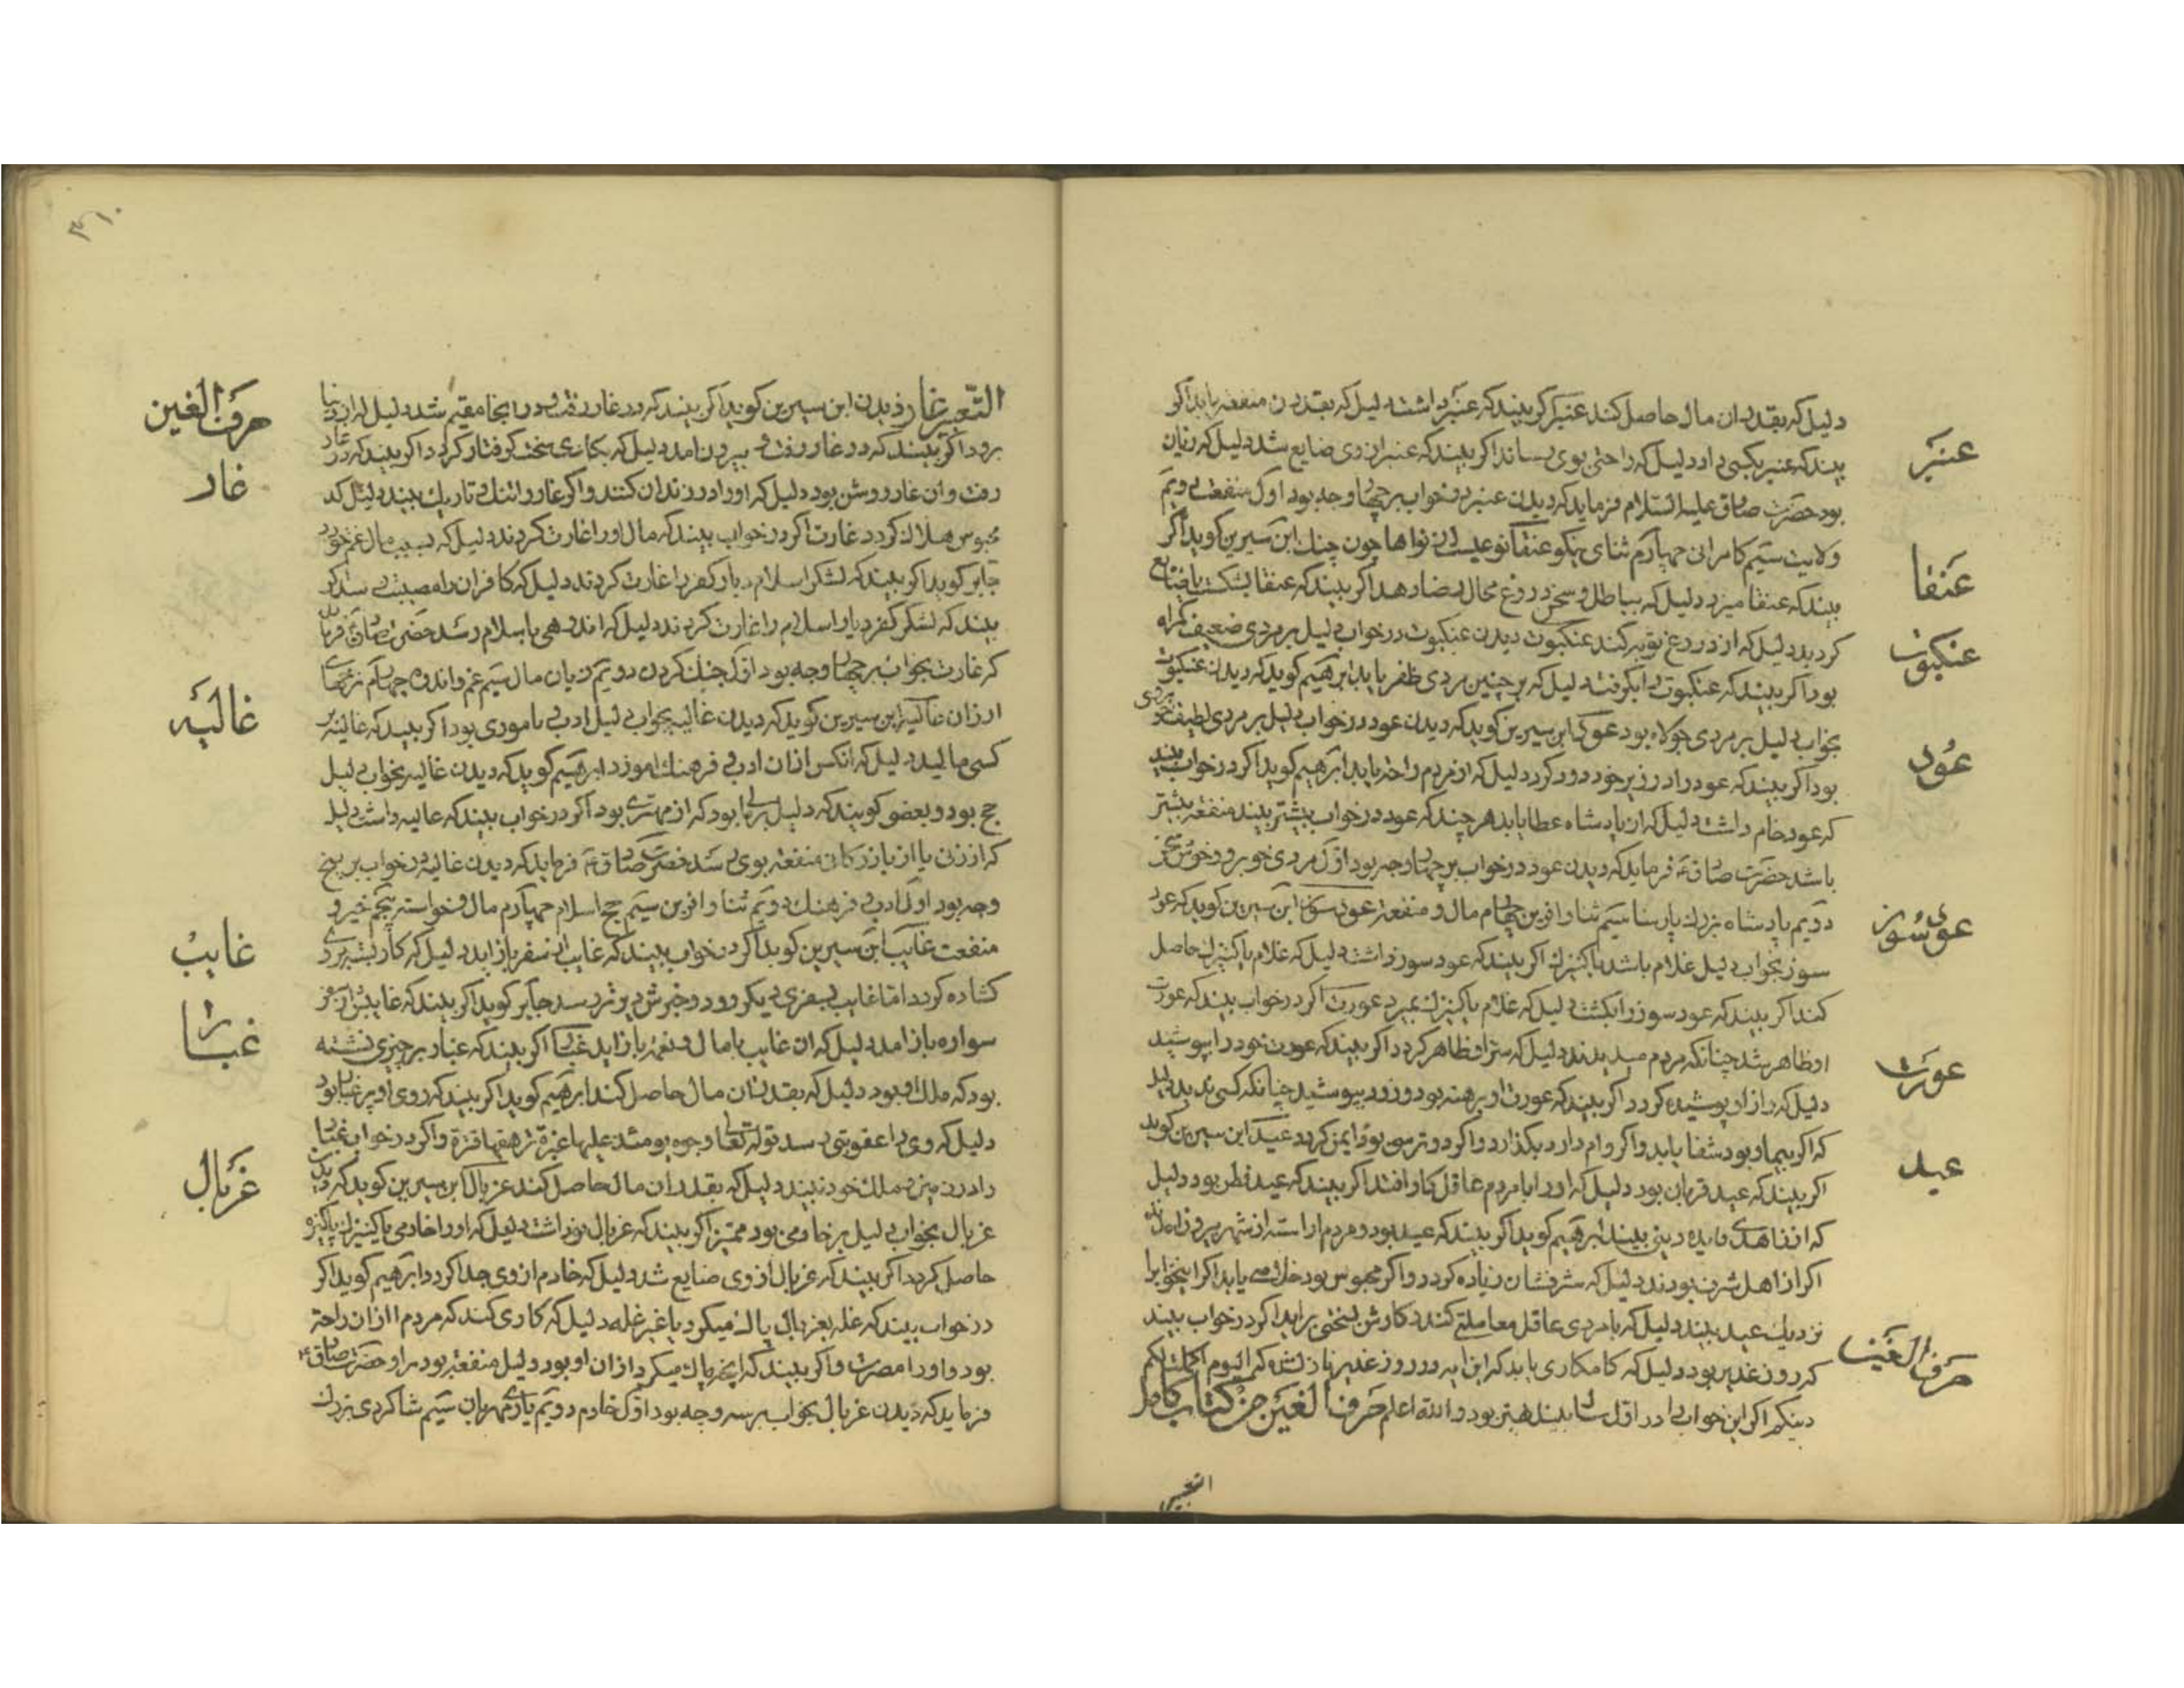 دلیل که بقدر ان مال حاصل کند عنبر اگر بیند که عنبر داشت دلیل که بقدر ان منفعه یابد اگر
عنبر
بیند که عنبر بکسی داد دلیل که راحتی بوی رساند اگر بیند که عنبر از وی ضایع شد دلیل که زیان
بود حضرت صادق علیه السلام فرماید که دیدن عنبر در خواب بر چهار وجه بود اول منفعت دویم
ولایت سیم کامرانی چهارم ثنای نیکو عنقا نوعیست از نواها چون چنک ابن سیرین کوید اگر
عنقا
بیند که عنقا میزد دلیل که بباطل و سخن دروغ محال رضا دهد اگر بیند که عنقا بشکست یا ضایع
کردید دلیل که از دروغ توبه کند عنکبوت دیدن عنکبوت در خواب دلیل بر مردی ضعیف کمراه
عنکبوت
بود اگر بیند که عنکبوت را بکرفت دلیل که بر چنین مردی ظفر یابد ابرهیم کوید که دیدن عنکبوت
بخواب دلیل بر مردی جولاه بود عود ابن سیرین کوید که دیدن عود در خواب دلیل بر مردی لطیف
عود
بود اگر بیند که عود را در زیر خود دود کرد دلیل که از مردم راحه یابد ابرهیم کوید اگر در خواب بیند
که عود خام داشت دلیل که از پادشاه عطا یابد هر چند که عود در خواب بیشتر بیند منفعه بیشتر
باشد حضرت صادق فرماید که دیدن عود در خواب بر چهار وجه بود اول مردی خوبرو و خوش سخن
دویم پادشاه بزرك پارسا سیم ثنا و افرین چهارم مال و منفعه عود سوز ابن سیرین کوید که عود
عود سوز
سوز بخواب دلیل غلام باشد یا کنیزك اگر بیند که عود سوز داشت دلیل که غلام یا کنیزك حاصل
کند اگر بیند که عود سوز را بکشت دلیل که غلام یا کنیزك بمیرد عورت اگر در خواب بیند که عورت
او ظاهر شد چنانکه مردم میدیدند دلیل که ستر او ظاهر کردد اگر بیند که عورت خود را بپوشید
عورت
دلیل که راز او پوشیده کردد اگر بیند که عورت او برهنه بود و زود بپوشید چنانکه کسی ندید دلیل
که اگر بیمار بود شفا یابد و اگر وام دارد بکذارد و اگر در ترس بود ایمن کردد عید ابن سیرین کوید
عید
اگر بیند که عید قربان بود دلیل که او را با مردم عاقل کار افتد اگر بیند که عید فطر بود دلیل
ابرهیم کوید اگر بیند که عید بود و مردم اراسته از شهر بیرون
اگر از اهل شرف بودند دلیل که شرفشان زیاده کردد و اگر محبوس بود خلاصی یابد اگر این خواب را
نزدیك عید بیند دلیل که با مردی عاقل معاملتی کند و کارش بسختی براید اگر در خواب بیند
که روز غدیر بود دلیل که کامکاری یابد که این ایه در روز غدیر نازل شده که الیوم اکملت لکم
حرف الغین
دینکم اگر این خواب را در اول سال بیند بهتر بود والله اعلم حرف الغین من کتاب کامل
التعبیر
۳۱۰
حرف الغین
التعبیر غار دیدن ابن سیرین کوید اگر بیند که در غار رفت و در انجا مقیم شد دلیل که از دنیا
برود اگر بیند که در غار رفت و بیرون امد دلیل که بکاری سخت کرفتار کردد اگر بیند که در غار
غار
رفت و ان غار روشن بود دلیل که او را در زندان کنند و اگر غار را تنك و تاریك بیند دلیل که
محبوس هلاك کردد غارت اگر در خواب بیند که مال او را غارت کردند دلیل که بسبب مال غم خورد
جابر کوید اگر بیند که لشکر اسلام دیار کفر را غارت کردند دلیل که کافران را مصیبتی رسد اگر
بیند که لشکر کفر دیار اسلام را غارت کردند دلیل که اندوهی باسلام رسد حضرت صادق فرماید
که غارت بخواب بر چهار وجه بود اول جنك کردن دویم زیان مال سیم غم و اندوه چهارم نرخهای
ارزان غالیه ابن سیرین کوید که دیدن غالیه بخواب دلیل ادب باموزی بود اگر بیند که غالیه بر
غالیه
کسی مالید دلیل که انکس از ان ادب و فرهنك اموزد ابرهیم کوید که دیدن غالیه بخواب دلیل
حج بود و بعضی کویند که دلیل بر بود که از مهتری بود اگر در خواب بیند که غالیه داشت دلیل
که از زنی یا از بازرکانی منفعه بوی رسد حضرت صادق فرماید که دیدن غالیه در خواب بر پنج
وجه بود اول ادب و فرهنك دویم ثنا و افرین سیم حج اسلام چهارم مال و خواسته پنجم خیر و
منفعت غایب ابن سیرین کوید اگر در خواب بیند که غایب از سفر باز اید دلیل که کار بسته بر وی
غایب
کشاده کردد اما غایب بسفری دیکر رود و خبرش دیرتر رسد جابر کوید اگر بیند که غایبش از سفر
سواره باز امد دلیل که ان غایب با مال و نعمه باز اید غبار اگر بیند که غبار بر چیزی نشسته
غبار
بود که ملك او بود دلیل که بقدر ان مال حاصل کند ابرهیم کوید اگر بیند که روی او پر غبار بود
دلیل که وی را عقوبتی رسد قوله تعالی وجوه یومئذ علیها غبرة ترهقها قترة و اگر در خواب غبار
را در زمین و ملك خود بیند دلیل که بقدر ان مال حاصل کند غربال ابن سیرین کوید که دیدن
غربال
غربال بخواب دلیل بر خادمی بود ممیز اگر بیند که غربال نو داشت دلیل که او را خادمی یا کنیزك پاکیزه
حاصل کردد اگر بیند که غربال از وی ضایع شد دلیل که خادم از وی جدا کردد ابرهیم کوید اگر
در خواب بیند که غله بغربال پاك میکرد یا غیر غله دلیل که کاری کند که مردم را از ان راحه
بود و او را مضرت و اگر بیند که انچه پاك میکرد از ان او بود دلیل منفعه بود مر او را حضرت صادق
فرماید که دیدن غربال بخواب بر سه وجه بود اول خادم دویم یاری مهربان سیم شاکردی بزرك